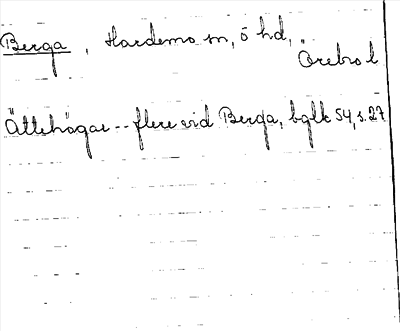 Berga, Hardemo sn, ö hd,
Örebro l
Ättehögar -- flere vid Berga, bglk 54, s. 27